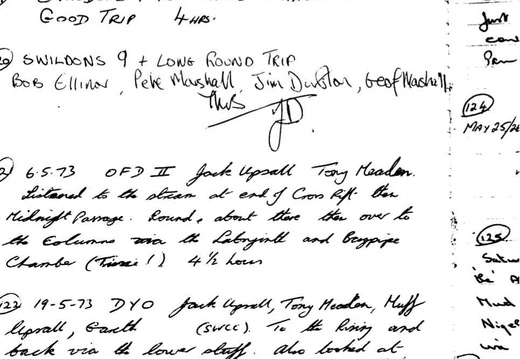 GOOD TRIP 4 HRS.
SWILDONS 9 + LONG ROUND TRIP
BOB Ellinor, Pete Marshall, Jim Durston, Geof Marshall
JD
6.5.73 OFD II Jack Upsall Tony Meaden.
Listened to the stream at end of Cross Rift. then
Midnight Passage. Round & about there then over to
the Columns via the Labyrinth and Bagpipe
Chamber ( !) 4 1/2 hours
122 19-5-73 DYO Jack Upsall, Tony Meaden, Muff
Upsall, Garth (SWCC). To the Rising and
back via the lower . Also looked at
Just
124
MAY 25/26
125